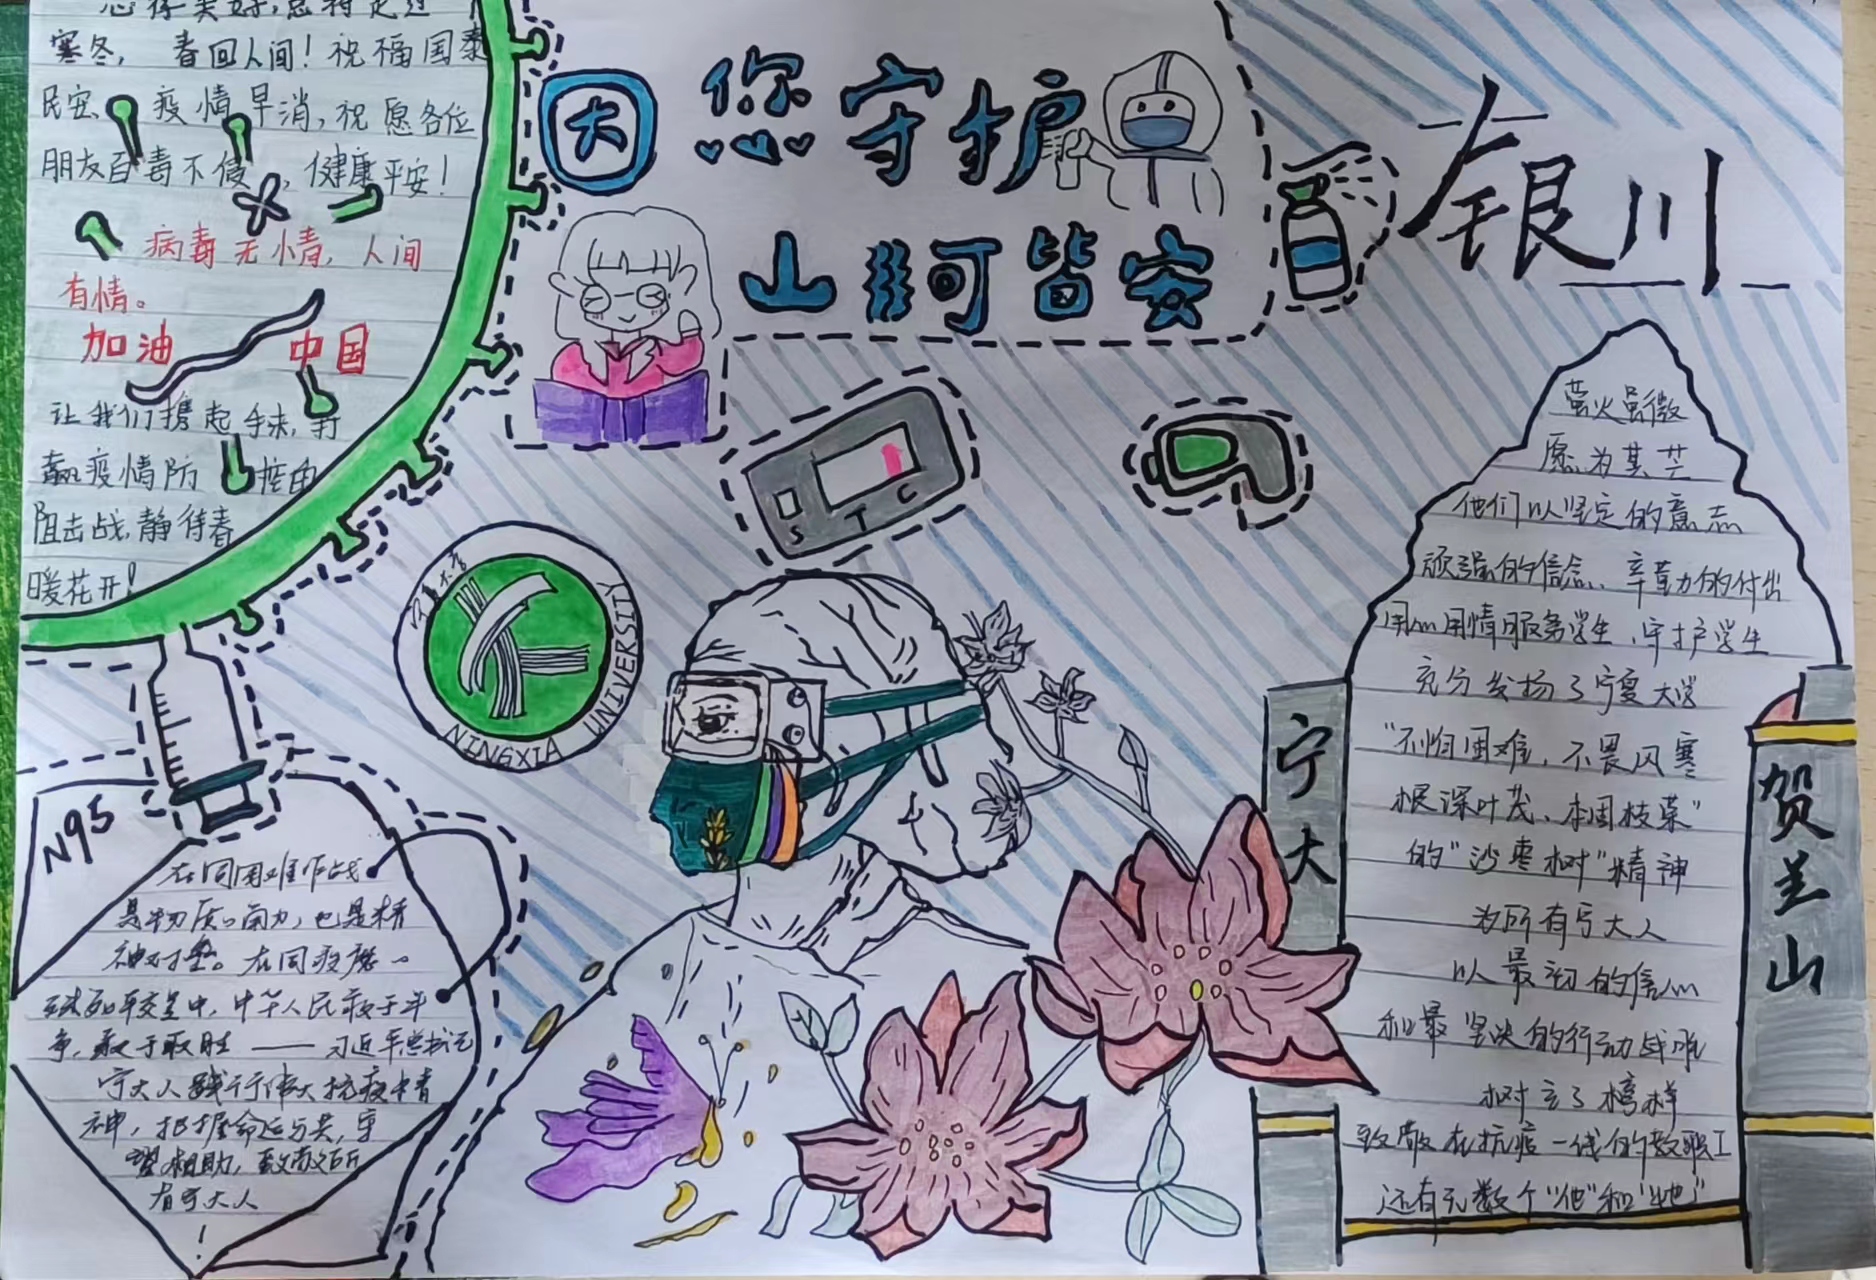 寒冬, 春回人间!祝福国泰
民安、疫情早消,祝愿各位
朋友百毒不侵,健康平安!
病毒无情,人间
有情。
加油 中国
让我们携起手来,打
赢疫情防控的
阻击战,静待春
暖花开!
因您守护
山河皆安
银川
S T C
宁夏大学
NINGXIA UNIVERSITY
N95
在同困难作战
是物质的角力,也是精
神对垒。在同疫魔
中,中华人民敢于斗
争,敢于取胜——习近平总书记
宁大人践行伟大抗疫精
神,把握命运与共,守
望相助,致敬所
有宁大人
!
萤火虽微
愿为其芒
他们以坚定的意志
顽强的信念、辛勤的付出
用心用情服务学生,守护学生
充分发扬了宁夏大学
“不怕困难,不畏风寒
根深叶茂、本固枝荣”
的“沙枣树”精神
为所有宁大人
以最 的信心
和最坚决的行动战
树立了榜样
致敬在抗疫一线的教职工
还有无数个“他”和“她”
宁大
贺兰山